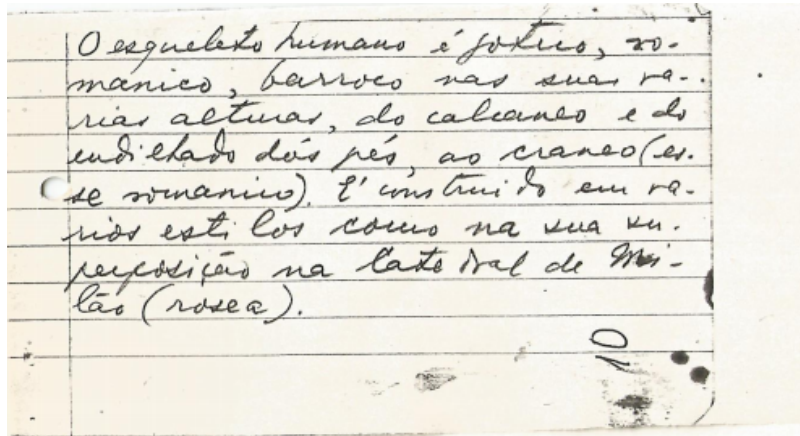 O esqueleto humano é gotico, ro-
manico, barroco nas suas va-
rias alturas, do calcaneo e do
dos pés, ao craneo (es-
se romanico). E' construido em va-
rios estilos como na sua su-
perposição na Catedral de Mi-
lão (rosea).
10